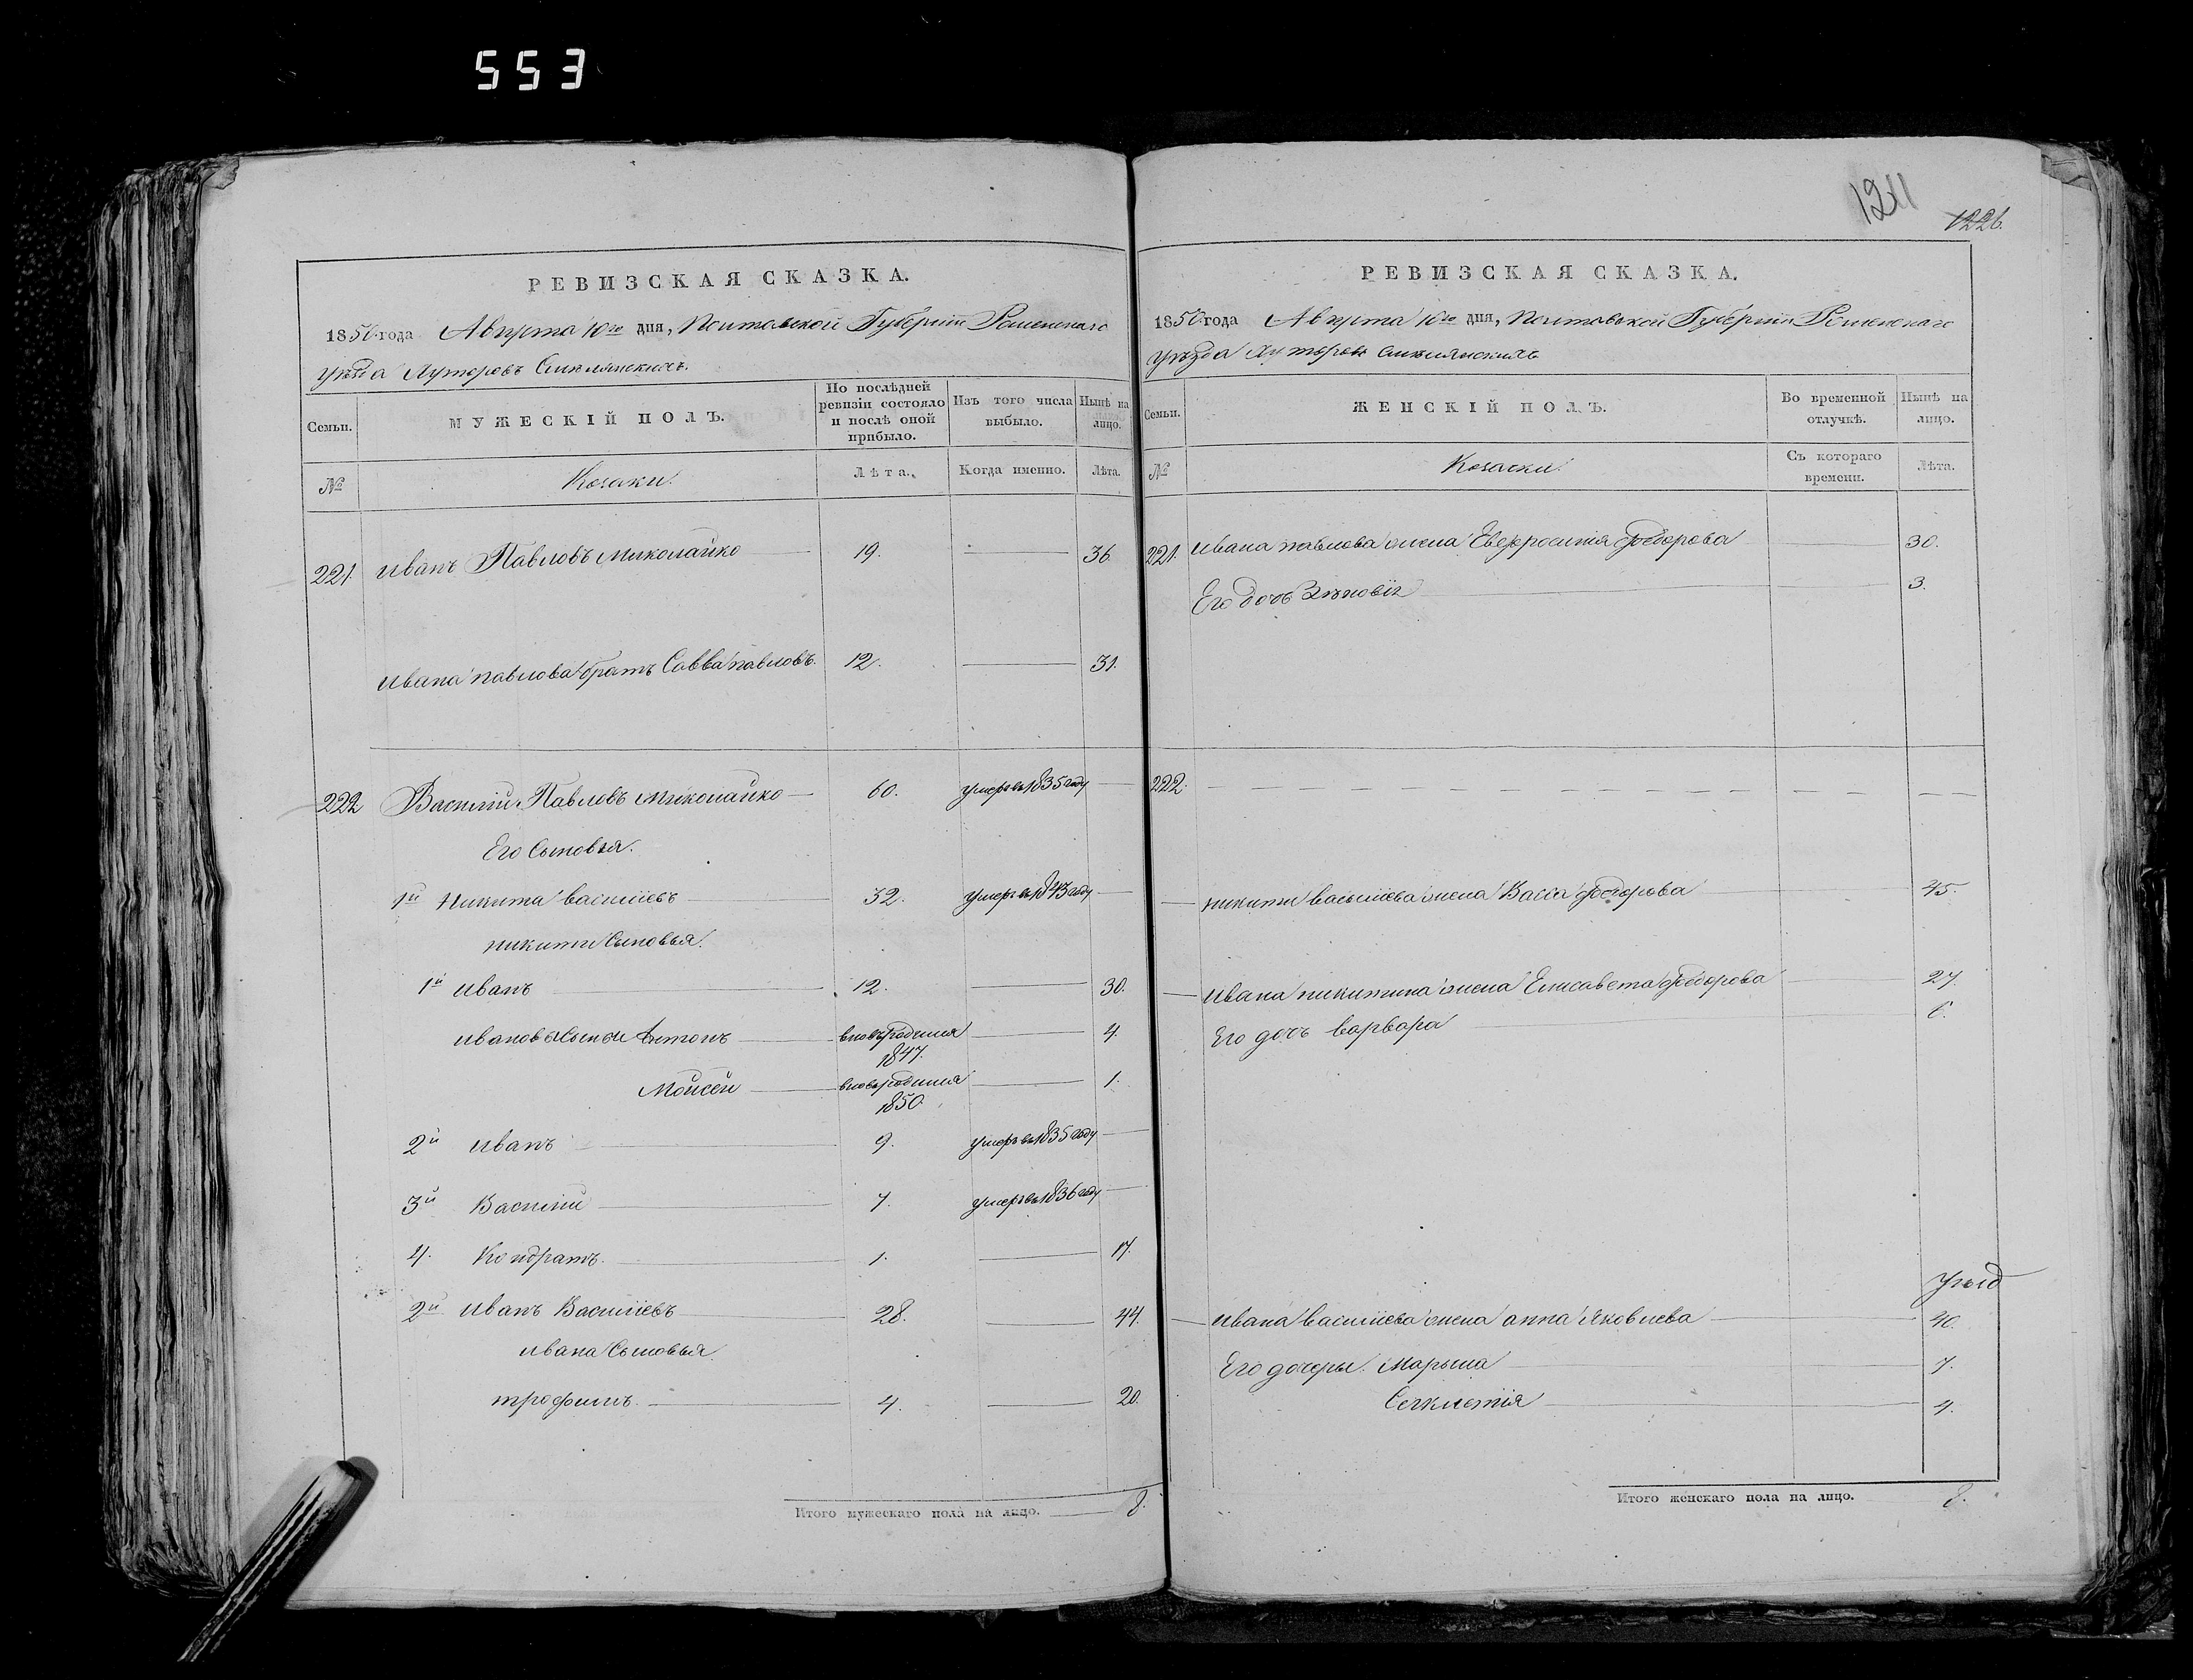 553
1211
1226.
РЕВИЗСКАЯ СКАЗКА.
1850 года Августа 10го дня, Полтавской Губерніи Роменскаго
уѣзда Хуторовъ
По послѣдней ревизіи состояло и послѣ оной прибыло.
Изъ того числа выбыло.
Нынѣ на лицо.
Семьи.
МУЖЕСКІЙ ПОЛЪ.
№
Козаки.
Лѣта.
Когда именно.
Лѣта.
221. Иванъ Павловъ Миколайко 19. 36
Ивана Павлова братъ Савва Павловъ. 12. 31.
222 Василий Павловъ Миколайко 60. умеръ въ 1835 году
Его Сыновья.
1й Никита Василіевъ 32. умеръ въ 1843 году
Никити Сыновья.
1й Иванъ 12. 30.
Ивановы Сыны Антонъ вновь родился 1847. 4.
Мойсей вновь родился 1850 1.
2й Иванъ 9. умеръ въ 1835 году
3й Василий 7. умеръ въ 1836 году
4. Кондратъ. 1. 17.
2й Иванъ Василіевъ 28. 44.
Ивана Сыновья
Трофимъ. 4. 20.
Итого мужескаго пола на лицо. 8.
РЕВИЗСКАЯ СКАЗКА.
1850 года Августа 10го дня, Полтавской Губерніи Роменскаго
уѣзда Хуторовъ
Семьи.
ЖЕНСКІЙ ПОЛЪ.
Во временной отлучкѣ.
Нынѣ на лицо.
№
Козачки.
Съ котораго времени.
Лѣта.
221. Ивана Павлова жена Евфросинія Федорова 30.
Его дочь Зѣновія 3.
222.
Никити Василіева жена Васса Федорова 45.
Ивана Никитина жена Елисавета Федорова 27.
Его дочь Варвара 6.
Ивана Василіева жена Анна Яковлева 40.
Его дочеры. Марына 7.
Секлетія 4.
Итого женскаго пола на лицо. 8.